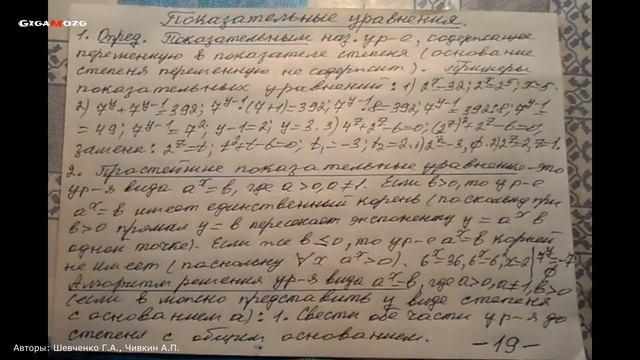 Показательные уравнения.
GIGAMOZG
1. Опред. Показательным наз. ур-е, содержащее
переменную в показателе степени (основание
степени переменную не содержит). Примеры
показательных уравнений: 1) 2ˣ=32; 2ˣ=2⁵; x=5.
2) 7ʸ+7ʸ⁻¹=392; 7ʸ⁻¹·(7+1)=392; 7ʸ⁻¹·8=392; 7ʸ⁻¹=392:8; 7ʸ⁻¹=
=49; 7ʸ⁻¹=7²; y-1=2; y=3. 3) 4ᶻ+2ᶻ-6=0; (2ᶻ)²+2ᶻ-6=0;
замена: 2ᶻ=t; t²+t-6=0; t₁=-3; t₂=2. 1) 2ᶻ=-3, ∅. 2) 2ᶻ=2, z=1.
2. Простейшие показательные уравнение-это
ур-я вида aˣ=b, где a>0, a≠1. Если b>0, то ур-е
aˣ=b имеет единственный корень (поскольку при
b>0 прямая y=b пересекает экспоненту y=aˣ в
одной точке). Если же b≤0, то ур-е aˣ=b корней
не имеет (поскольку ∀x aˣ>0). 6ˣ=36, 6ˣ=6², x=2 | 7ˣ=-7 ∅
Алгоритм решения ур-я вида aˣ=b, где a>0, a≠1, b>0
(если b можно представить в виде степени
с основанием a): 1. Свести обе части ур-я до
степеня с общим основанием.
-19-
Авторы: Шевченко Г.А., Чивкин А.П.